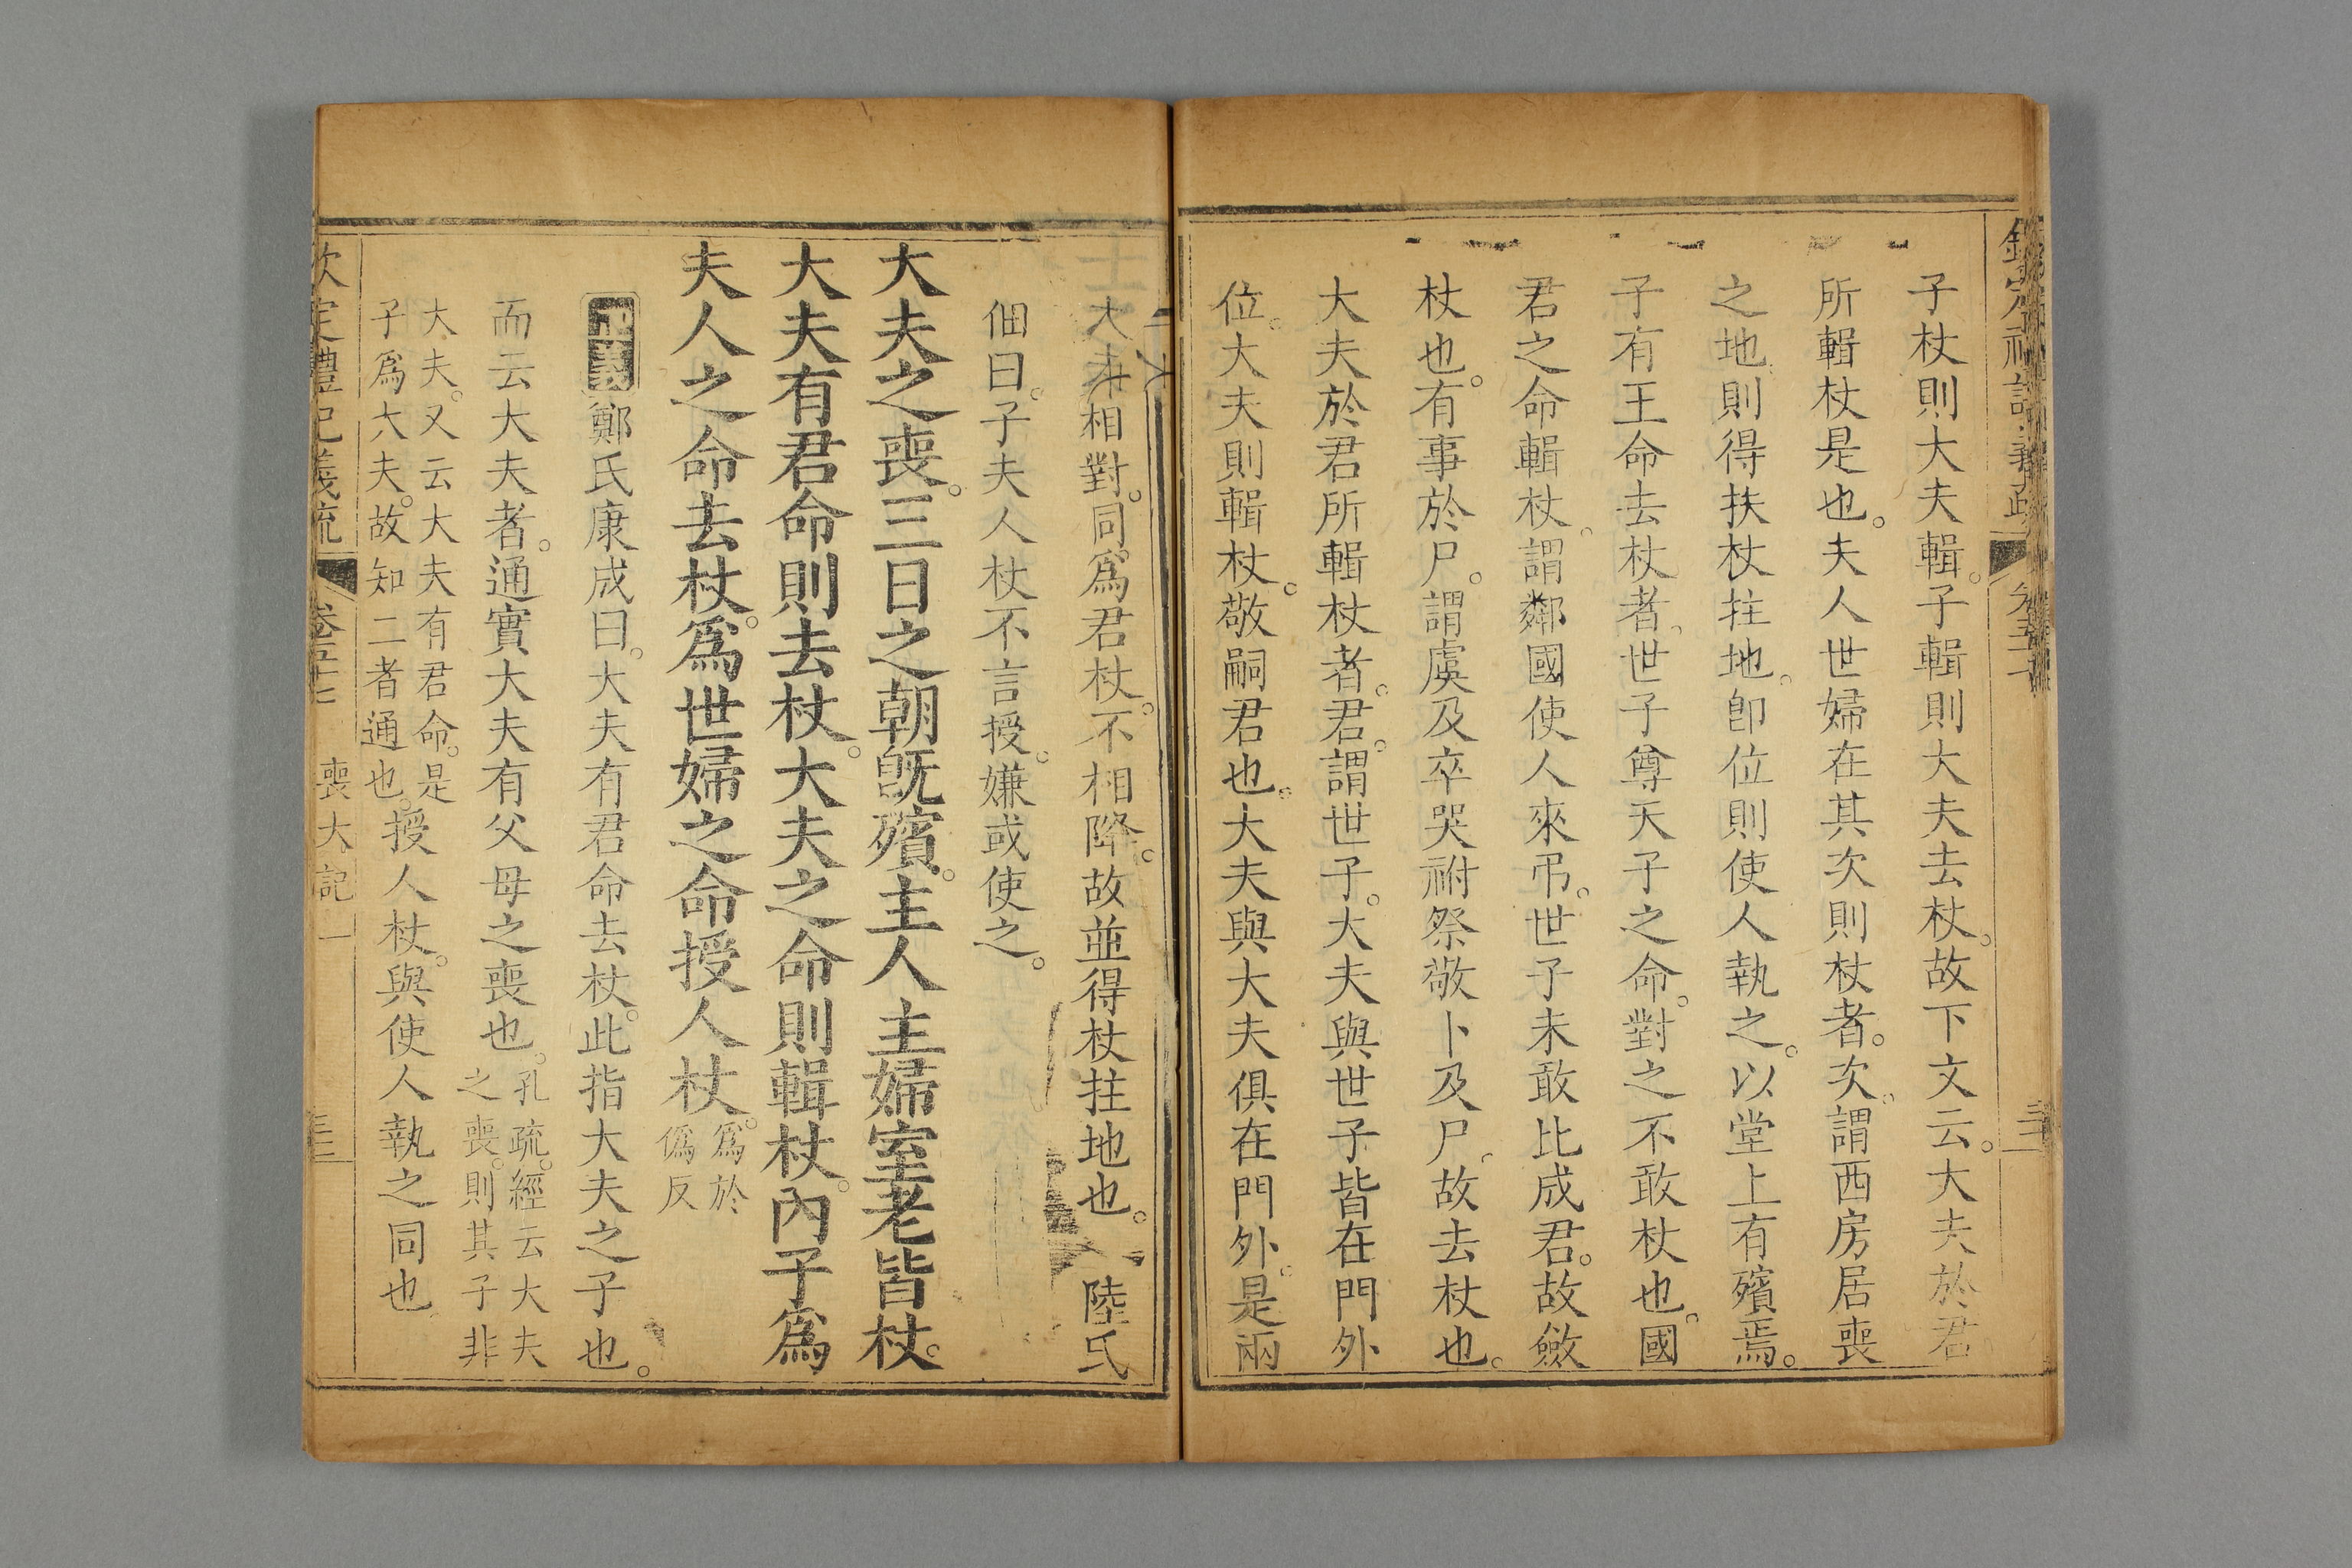 子杖則大夫輯。子輯則大夫去杖。故下文云。大夫於君
所輯杖是也。夫人世婦在其次則杖者。次。謂西房居喪
之地則得扶杖拄地。卽位則使人執之。以堂上有殯焉。
子有王命去杖者。世子尊天子之命。對之不敢杖也。國
君之命輯杖。謂鄰國使人來弔。世子未敢比成君。故斂
杖也。有事於尸。謂虞及卒哭祔祭敬卜及尸。故去杖也。
大夫於君所輯杖者。君。謂世子。大夫與世子皆在門外
位。大夫則輯杖。敬嗣君也。大夫與大夫俱在門外。是兩
大夫相對。同爲君杖。不相降。故並得杖拄地也。 陸氏
佃曰。子夫人杖不言授。嫌或使之。
大夫之喪。三日之朝旣殯。主人主婦室老皆杖。
大夫有君命則去杖。大夫之命則輯杖。內子爲
夫人之命去杖。爲世婦之命授人杖。爲於
僞反
正義鄭氏康成曰。大夫有君命去杖。此指大夫之子也。
而云大夫者。通實大夫有父母之喪也。孔疏。經云大夫
之喪。則其子非
大夫。又云大夫有君命。是
子爲大夫。故知二者通也。授人杖。與使人執之同也
欽定禮記義疏
喪大記一